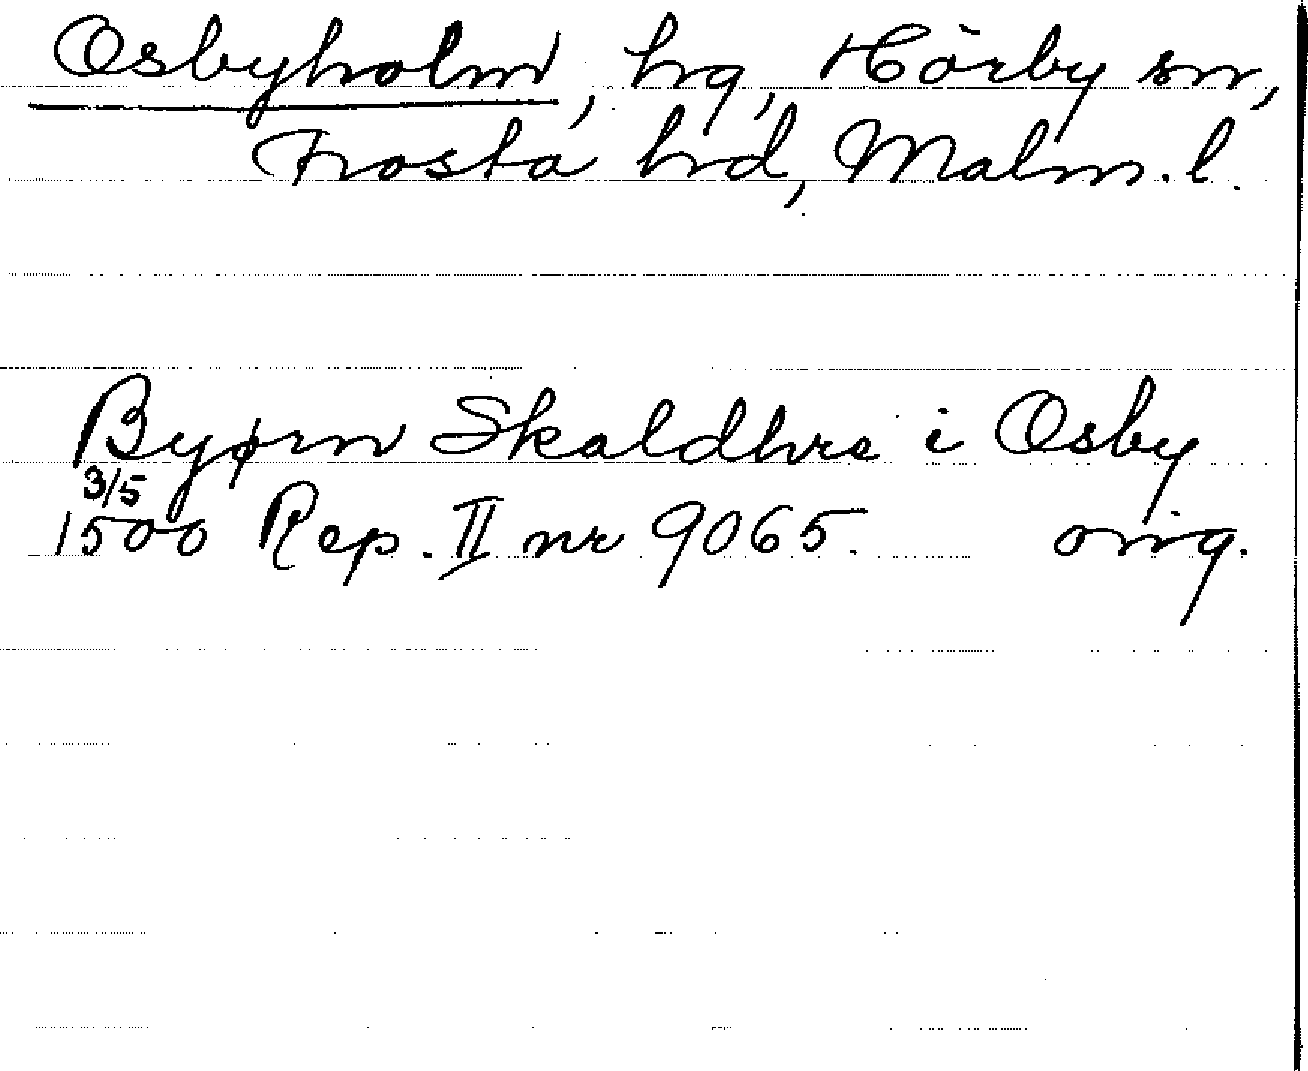 Osbyholm, hg, Hörby sn,
Frosta hd, Malm. l.
Byørn Skaldhre i Osby
3/5
1500 Rep. II nr 9065. orig.